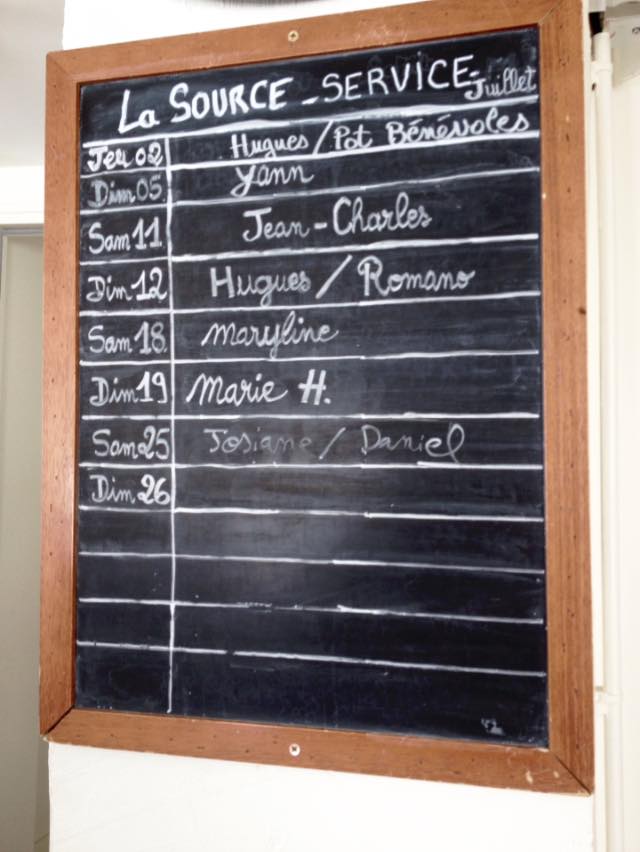 La SOURCE - SERVICE - Juillet
Jeu 02 Hugues / Pot Bénévoles
Dim 05 Yann
Sam 11 Jean-Charles
Dim 12 Hugues / Romano
Sam 18 Maryline
Dim 19 Marie H.
Sam 25 Josiane / Daniel
Dim 26